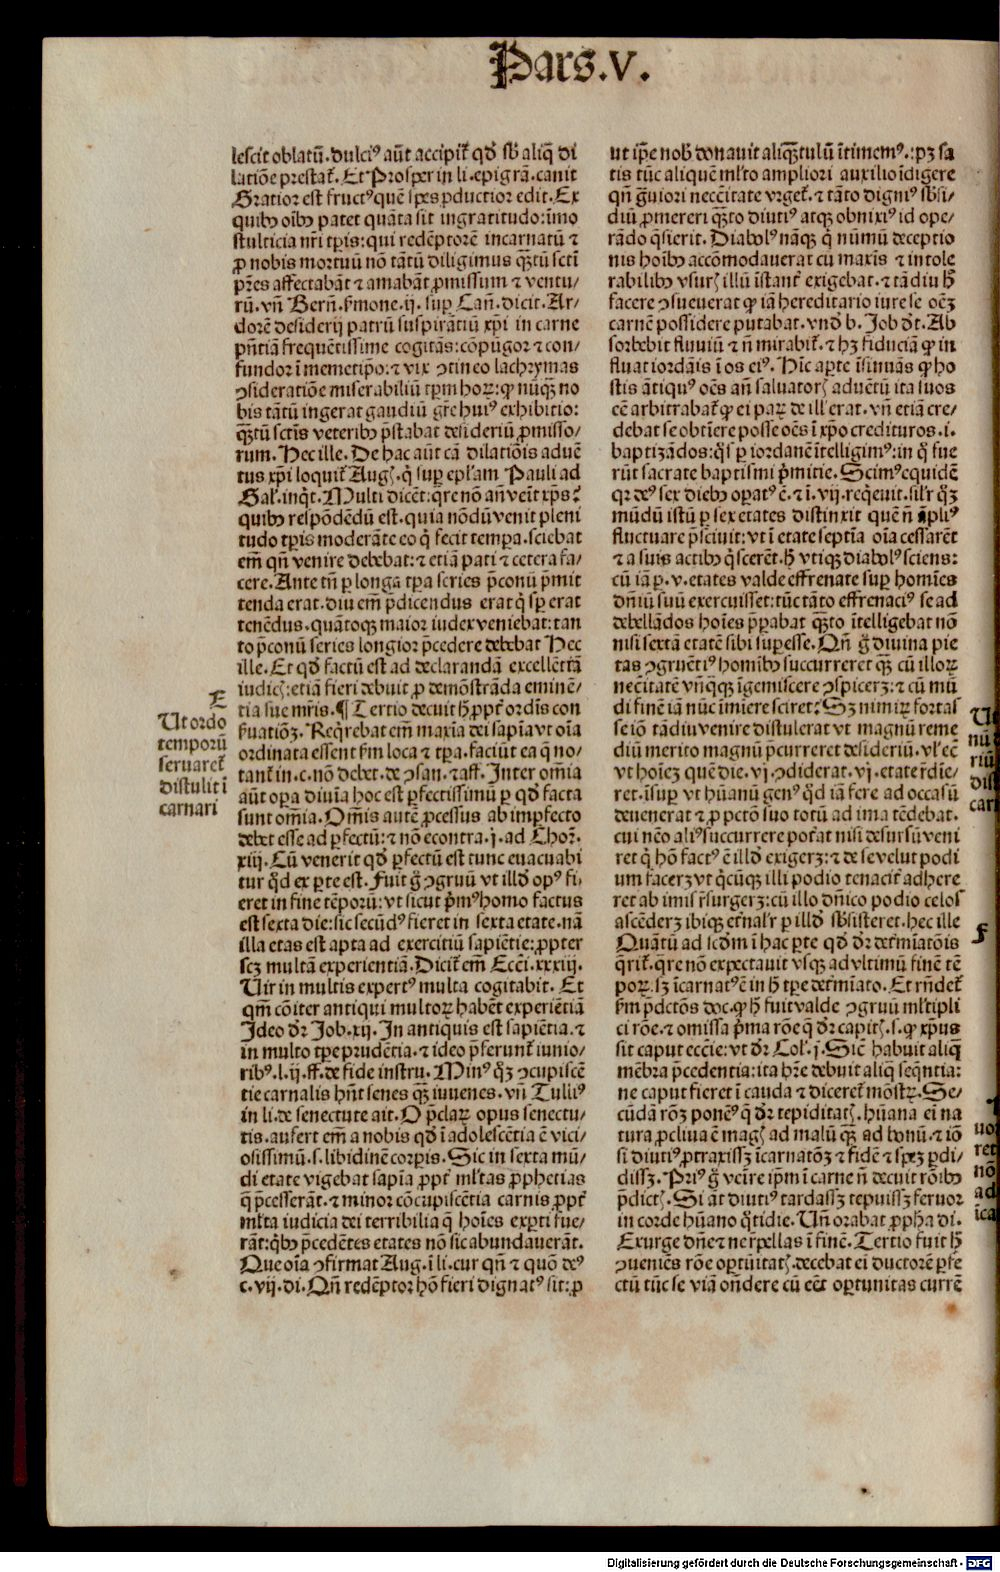 Pars.V.
lescit oblatū.dulciꝰ aūt accipit̄ qd̛ sb̛ aliq̄ di
latiōe prestat̄.Et Prosper in li.epigrā.canit
Gratior est fructꝰ quē spes ꝓductior edit.Ex
quibꝰ oībꝰ patet quāta sit ingratitudo:īmo
stulticia nr̄i tp̄is:qui redēptorē incarnatū ⁊
ꝓ nobis mortuū nō tātū diligimus qȝtū sctī
pr̄es affectabāt ⁊ amabāt ꝓmissum ⁊ ventu/
rū.vn̄ Bern̄.ẜmone.ij.suꝑ Can̄.dicit.Ar/
dorē desiderij patrū suspirātiū xp̄i in carne
pn̄tiā frequētissime cogitās:cōpūgor ⁊ con/
fundor ī memetip̄o:⁊ vix ꝯtineo lachrymas
ꝯsideratiōe miserabiliū tp̄m hoꝝ:ꝙ nūqȝ no
bis tātū ingerat gaudiū gr̄e huiꝰ exhibitio:
qȝtū sctīs veteribꝰ p̄stabat desideriū ꝓmisso/
rum.Hec ille.De hac aūt cā dilatiōis aduē
tus xp̄i loquit̄ Augꝭ.q̄ suꝑ ep̄lam Pauli ad
Gal̄.inqͥt.Multi dicēt:qͣre nō an̄ veīt xp̄s?
quibꝰ respōdēdū est.quia nōdū venit pleni
tudo tp̄is moderāte eo q̄ fecit temꝑa.sciebat
em̄ qn̄ venire debebat:⁊ etiā pati ⁊ cetera fa/
cere.Ante tn̄ ꝑ longa tp̄a series p̄conū p̄mit
tenda erat.diu em̄ p̄dicendus erat q̄ sp̄ erat
tenēdus.quātoqȝ maior iudex veniebat:tan
to p̄conū series longior p̄cedere debebat Hec
ille.Et qd̛ factū est ad declarandā excellētiā
iudicꝭ:etiā fieri debuit ꝓ demōstrāda eminē/
tia sue mr̄is.¶ Tertio decuit h̄ ꝓpt̄ ordīs con
ẜuatiōȝ.Reqͥrebat em̄ maxīa dei sapīa vt oīa
ordinata essent ẜm loca ⁊ tp̄a.faciūt ea q̄ no/
tant̄ in.c.nō debet.de ꝯsan.⁊ aff.Inter om̄ia
aūt oꝑa diuīa hoc est ꝑfectissimū ꝑ qd̛ facta
sunt om̄ia.Om̄is autē ꝓcessus ab imꝑfecto
debet esse ad ꝑfectū:⁊ nō econtra.j.ad Choꝝ.
xiij.Cū venerit qd̛ ꝑfectū est tunc euacuabi
tur qd̛ ex ꝑte est.Fuit g̊ ꝯgruū vt illd̛ opꝰ fi/
eret in fine tēporū:vt sicut p̄mꝰ homo factus
est sexta die:sic secūdꝰ fieret in sexta etate.nā
illa etas est apta ad exercitiū sapīētie:ꝓpter
scȝ multā experientiā.Dicit̄ em̄ Ecc̄i.xxxiij.
Uir in multis expertꝰ multa cogitabit.Et
qm̄ cōiter antiqui multoꝝ habēt experiētiā
Ideo dr̄ Job.xij.In antiquis est sapīētia.⁊
in multo tp̄e prudētia.⁊ ideo p̄ferunt̄ iunio/
ribꝰ.l.ij.ff.de fide instru.Minꝰ qȝ ꝯcupiscē
tie carnalis hn̄t senes qȝ iuuenes.vn̄ Tuliꝰ
in li.de senectute ait.O p̄claꝝ opus senectu/
tis.aufert em̄ a nobis qd̛ ī adolescētia ē vici/
osissimū.s.libidinē corꝑis.Sic in sexta mū/
di etate vigebat sapīa ꝓpt̄ ml̄tas ꝓphetias
q̄ p̄cesserāt.⁊ minor cōcupiscētia carnis ꝓpt̄
ml̄ta iudicia dei terribilia q̄ hoīes exꝑti fue/
rāt:qͥbꝰ p̄cedētes etates nō sic abundauerāt.
Que oīa ꝯfirmat Aug.ī li.cur qn̄ ⁊ quō deꝰ
c.vij.di.Qn̄ redēptor hō fieri dignatꝰ sit:ꝓ
E
Ut ordo
temporū
seruaret̄
distulit ī
carnari
ut ip̄e nob̄ donauit aliqȝtulū ītimemꝰ.:pȝ sa
tis tūc aliquē ml̄to ampliori auxilio īdigere
qn̄ g̊uiori necc̄itate vrget̄.⁊ tāto digniꝰ sb̛si/
diū ꝓmereri qȝto diutiꝰ atqȝ obnixiꝰ id ope/
rādo q̄sierit.Diabolꝰ nāqȝ q̄ nūmū deceptio
nis hoībꝰ accōmodauerat cū maxīs ⁊ intole
rabilibꝰ vsurꝭ illū īstant̄ exigebat.⁊ tādiu h̄
facere ꝯsueuerat ꝙ iā hereditario iure se oēȝ
carnē possidere putabat.vnd̛ b.Job dr̄.Ab
sorbebit fluuiū ⁊ n̄ mirabit̄.⁊ hȝ fiduciā ꝙ in
fluat iordāis ī os eiꝰ.Hīc aꝑte īsinuās ꝙ ho
stis ātiquꝰ oēs an̄ saluatorꝭ aduētū ita suos
eē arbitrabat̄ ꝙ ei paꝝ de ill̄ erat.vn̄ etiā cre/
debat se obtīere posse oēs ī xp̄o credituros.i.
baptizādos:qͣs ꝑ iordanē ītelligimꝰ:in q̄ fue
rūt sacrate baptismi p̄mitie.Scimꝰ equidē
qꝛ deꝰ sex diebꝰ oꝑatꝰ ē.⁊ ī.vij.reqͥeuit.sil̄r qȝ
mūdū istū ꝑ sex etates distinxit quē n̄ āpliꝰ
fluctuare p̄sciuit:vt ī etate septīa oīa cessarēt
⁊ a suis actibꝰ qͥescerēt.h̄ vtiqȝ diabolꝰ sciens:
cū iā ꝑ.v.etates valde effrenate suꝑ homīes
dn̄iū suū exercuisset:tūc tāto effrenaciꝰ se ad
debellādos hoīes p̄ꝑabat qȝto ītelligebat nō
nisi sextā etatē sibi suꝑesse.Qn̄ g̊ diuina pie
tas ꝯgruētiꝰ homībꝰ succurreret qȝ cū illoꝝ
necc̄itatē vn̄qȝqȝ īgemiscere ꝯspicerȝ:⁊ cū mū
di finē iā nūc īmiere sciret?Sȝ nimiꝝ fortas
se iō tādiu venire distulerat vt magnū reme
diū merito magnū p̄curreret desideriū.vl̄ eē
vt hoīeȝ quē die.vj.ꝯdiderat.vj.etate r̄dīe/
ret.īsuꝑ vt hūanū genꝰ qd̛ iā fere ad occasū
deuenerat ⁊ ꝓ pctō suo totū ad ima tēdebat.
cui nēo aliꝰ succurrere pot̄at nisi desursū veni
ret q̄ hō factꝰ ē illd̛ exigerȝ:⁊ de se velut podi
um facerȝ vt qͥcūqȝ illi podio tenacit̄ adhere
ret ab imis r̄surgerȝ:cū illo dn̄ico podio celos
ascēderȝ ibiqȝ et̄nal̄r ꝑ illd̛ sb̛sisteret.hec ille
Quātū ad scd̛m ī hac ꝑte qd̛ dr̄ det̄mīatōis
qͥrit̄.qͣre nō expectauit vsqȝ ad vltimū finē tē
poꝝ.sȝ īcarnatꝰ ē in h̄ tp̄e det̄mīato.Et rn̄det̄
ẜm p̄dctōs doc.ꝙ h̄ fuit valde ꝯgruū ml̄tipli
ci rōe.⁊ omissa p̄ma rōe q̄ dr̄ capitꝭ.s.ꝙ xp̄us
sit caput ecc̄ie:vt dr̄ Col̄.j.Sic̄ habuit aliq̄
mēbra p̄cedentia:ita hr̄e debuit aliq̄ seqn̄tia:
ne caput fieret ī cauda ⁊ diceret̄ mōstꝝ.Se/
cūdā rōȝ ponēꝰ q̄ dr̄ tepiditatꝭ.hūana ei na
tura ꝓcliua ē magꝭ ad malū qȝ ad bonū.⁊ iō
si diutiꝰ ꝓtraxissȝ īcarnatōȝ ⁊ fidē ⁊ speȝ ꝑdi/
dissȝ.Priꝰ g̊ veīre ip̄m ī carne n̄ decuit rōibꝰ
p̄dictꝭ.Si āt diutiꝰ tardassȝ tepuissȝ feruor
in corde hūano qͦtidie.Un̄ orabat ꝓpha di.
Exurge dn̄e ⁊ ne r̄pellas ī finē.Tertio fuit h̄
ꝯueniēs rōe oꝑtūitatꝭ.decebat ei ductorē ꝑfe
ctū tūc se viā on̄dere cū eēt oꝑtunitas currē
F
Digitalisierung gefördert durch die Deutsche Forschungsgemeinschaft - DFG